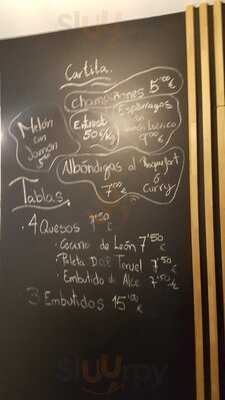 Cartita.
Champiñones 5'00€
Melón con Jamón 5'00
Entrecot 50€/kg
Espárragos con Jamón Ibérico 9'00€
Albóndigas al Roquefort ó Curry 7'00€
Tablas.
· 4 Quesos 9'50€
· Cecina de León 7'50€
· Paleta D.O.P. Teruel 7'50€
· Embutido de Alce 7'50€
3 Embutidos 15'00€
sluurpy